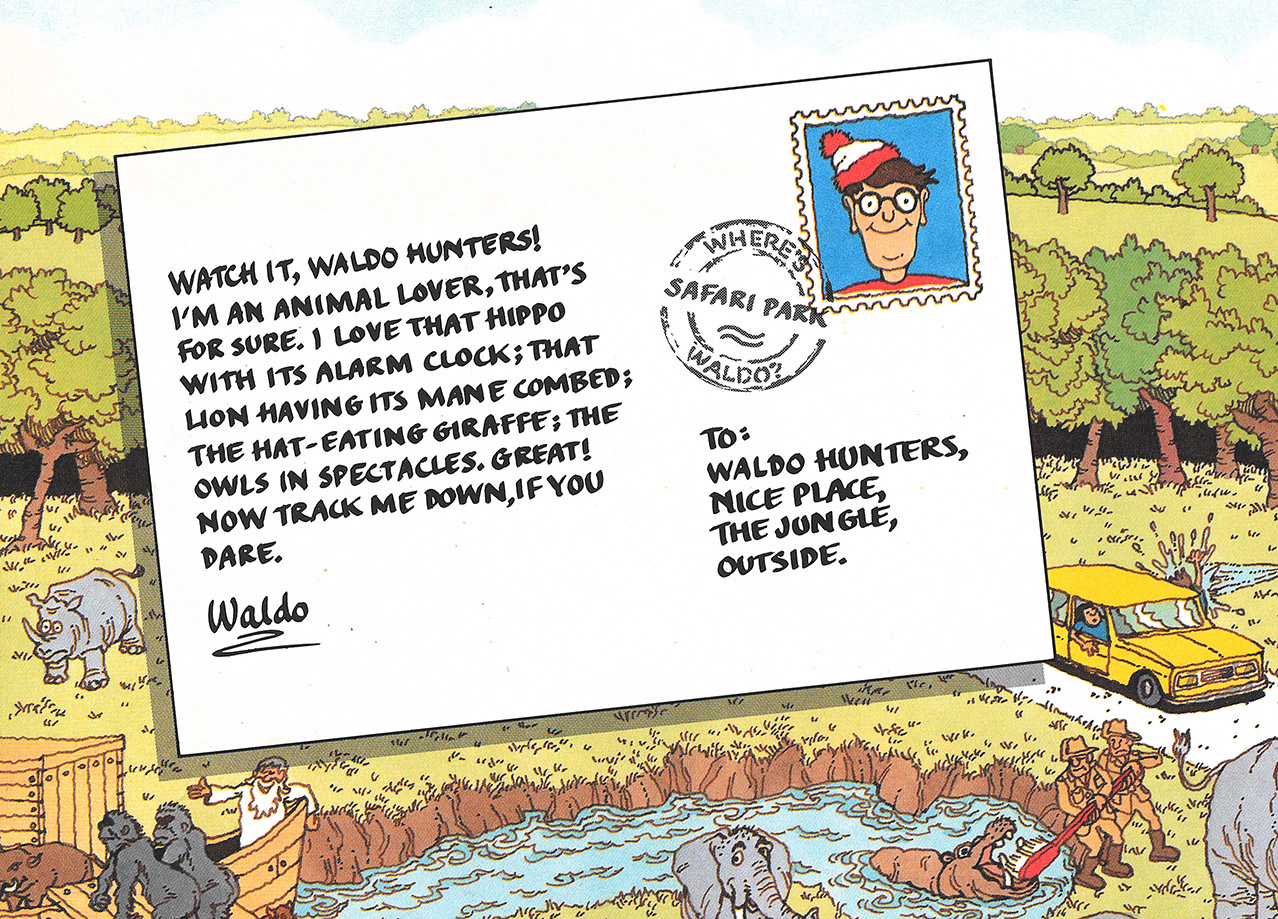 WATCH IT, WALDO HUNTERS!
I'M AN ANIMAL LOVER, THAT'S
FOR SURE. I LOVE THAT HIPPO
WITH ITS ALARM CLOCK; THAT
LION HAVING ITS MANE COMBED;
THE HAT-EATING GIRAFFE; THE
OWLS IN SPECTACLES. GREAT!
NOW TRACK ME DOWN, IF YOU
DARE.
Waldo
WHERE'S
SAFARI PARK
WALDO?
TO:
WALDO HUNTERS,
NICE PLACE,
THE JUNGLE,
OUTSIDE.